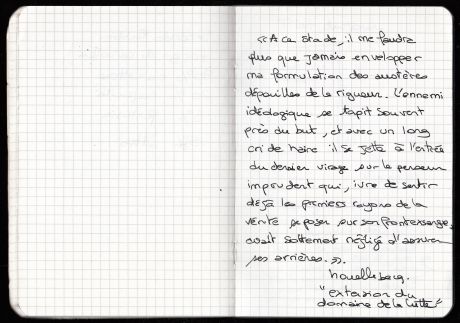 « A ce stade, il me faudra
plus que jamais envelopper
ma formulation des austères
dépouilles de la rigueur. L'ennemi
idéologique se tapit souvent
près du but, et avec un long
cri de haine il se jette à l'entrée
du dernier virage sur le penseur
imprudent qui, ivre de sentir
déjà les premiers rayons de la
vérité se poser sur son front exsangue,
avait sottement négligé d'assurer
ses arrières. ».
Houellebecq.
"extension du
domaine de la lutte"